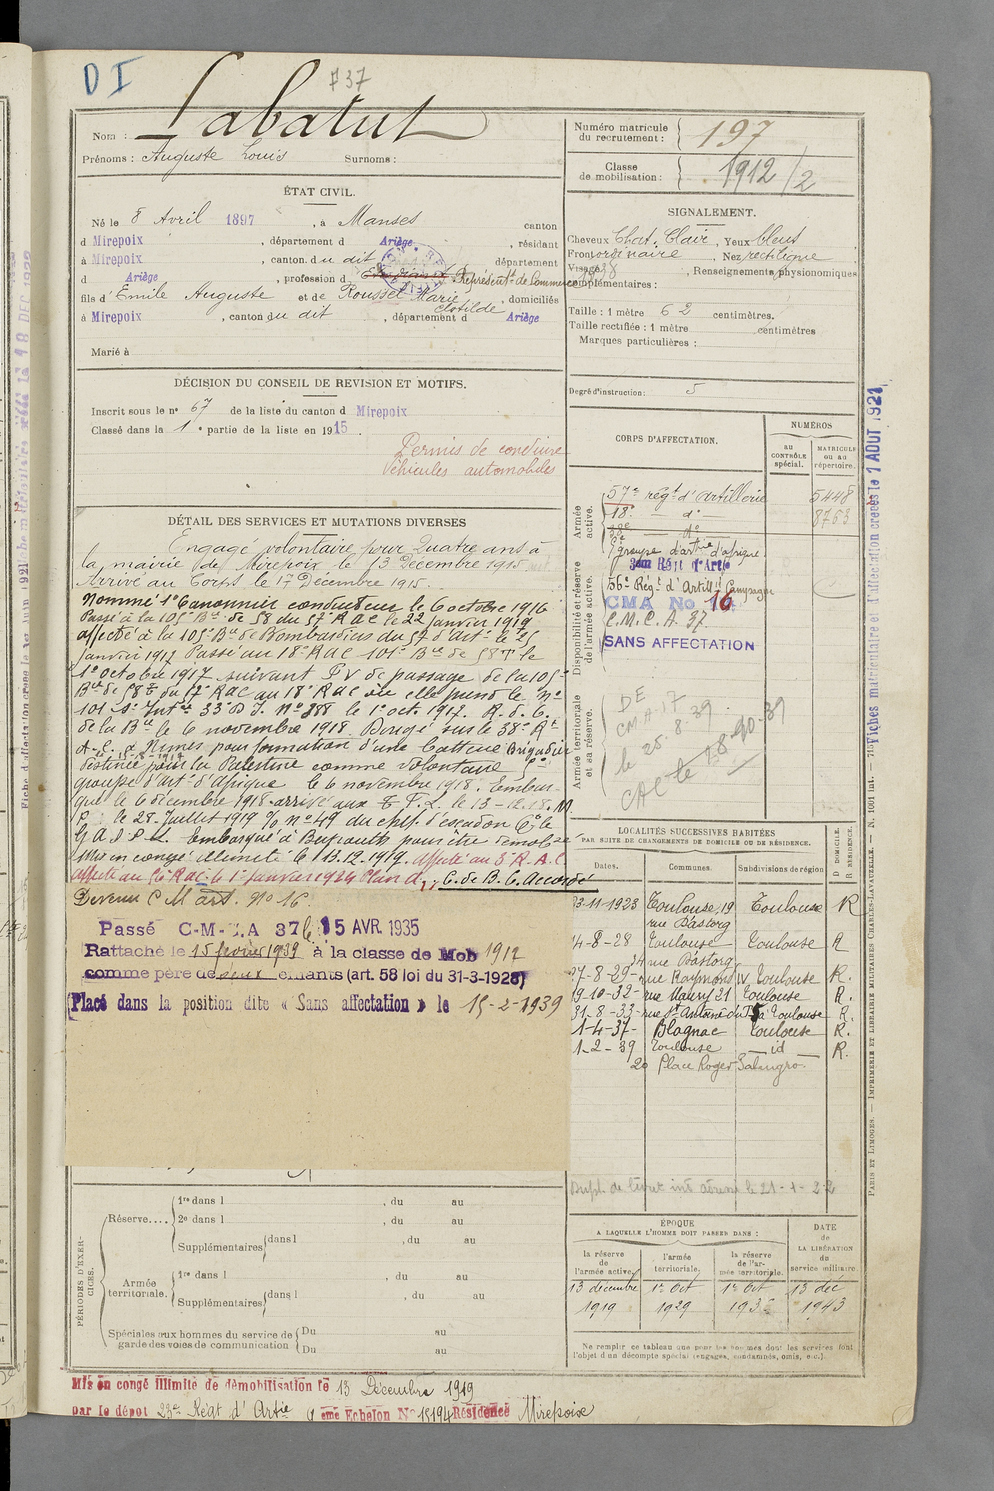 D I
737
Nom : Labatut
Prénoms : Auguste Louis Surnoms :
ÉTAT CIVIL.
Né le 8 Avril 1897, à Manses canton
d Mirepoix, département d Ariège, résidant
à Mirepoix, canton du dit département
d Ariège, profession d Etudiant Représent. de Commerce
fils d'Emile Auguste et de Roussel Marie Clotilde, domiciliés
à Mirepoix, canton du dit, département d Ariège
Marié à
DÉCISION DU CONSEIL DE REVISION ET MOTIFS.
Inscrit sous le n° 67 de la liste du canton d Mirepoix
Classé dans la 1e partie de la liste en 1915.
Permis de conduire
Véhicules automobiles
DÉTAIL DES SERVICES ET MUTATIONS DIVERSES
Engagé volontaire pour Quatre ans à
la mairie de Mirepoix le 13 Décembre 1915
Arrivé au Corps le 17 Décembre 1915.
Nommé 1e Canonnier conducteur le 6 octobre 1916
Passé à la 105e Bie de 58 du 57e RAC le 22 janvier 1917
affecté à la 105e Bie de Bombardiers du 57 d'Art. le 25
janvier 1917 Passé au 18e RAC 101e Bie de 58 T le
1e octobre 1917 suivant PV de passage de la 105e
Bie de 58 T du 57e RAC au 18e RAC où elle prend le n°
101 Don Intre 33 D.I. N° 388 le 1e oct. 1917. R. d. C.
de la Bie le 6 novembre 1918. Dirigé sur le 38e Rt
A.C. à Nîmes pour formation d'une batterie Brigadier
destinée pour la Palestine comme volontaire
groupe d'Art. d'Afrique le 6 novembre 1918. Embar-
qué le 6 décembre 1918 arrivé aux T.F.L. le 13-12.18. M
P. : le 28 Juillet 1919 O/ n° 49 du chef d'escadron Ct le
G.A.d.P.L. Embarqué à Beyrouth pour être démobsé
Mis en congé illimité le 13.12.1919. affecté au 3e R.A.C.
affecté au 56 RAC le 1e janvier 1924 Plan A, C. de B. C. Accordé
Devenu C M art. N° 16.
Passé C-M-A 37 le 15 AVR. 1935
Rattaché le 15 février 1939 à la classe de Mob 1912
comme père de deux enfants (art. 58 loi du 31-3-1928)
Placé dans la position dite « Sans affectation » le 15-2-1939
PÉRIODES D'EXERCICES.
Réserve.... 1re dans l , du au
2e dans l , du au
Supplémentaires dans l , du au
Armée territoriale. 1re dans l , du au
Supplémentaires dans l , du au
Spéciales aux hommes du service de garde des voies de communication Du au
Du au
Mis en congé illimité de démobilisation le 13 Décembre 1919
par le dépôt 23e Régt d'Artie eme Echelon N° 15194 Résidence Mirepoix
Numéro matricule du recrutement : 197
Classe de mobilisation : 1912/2
SIGNALEMENT.
Cheveux Chat. Clair, Yeux bleus
Front ordinaire, Nez rectiligne
Visage , Renseignements physionomiques
complémentaires :
Taille : 1 mètre 62 centimètres.
Taille rectifiée : 1 mètre centimètres
Marques particulières :
Degré d'instruction : 5
CORPS D'AFFECTATION.
NUMÉROS
au CONTRÔLE spécial.
MATRICULE ou au répertoire.
Armée active.
57e régt d'artillerie 5448
18e — d° — 8763
38e — d°
groupe d'artie d'afrique
Disponibilité et réserve de l'armée active.
3em Régt d'Artie
56e Régt d'Artillie Campagne
CMA No 16
C.M.C.A. 37.
SANS AFFECTATION
Armée territoriale et sa réserve.
DE
CM.A.17
le 25.8.39
CAC le 18-10-39
LOCALITÉS SUCCESSIVES HABITÉES
PAR SUITE DE CHANGEMENTS DE DOMICILE OU DE RÉSIDENCE.
Dates. Communes. Subdivisions de région D DOMICILE. R RÉSIDENCE.
23-11-1923 Toulouse, 19 rue Bastorg Toulouse R
14-8-28 Toulouse 34 rue Bastorg Toulouse R
27-8-29 rue Raymond IV Toulouse R.
19-10-32 rue Maury 21 Toulouse R.
31-8-33 rue St Antoine du T 5 à Toulouse R.
1-4-37- Blagnac Toulouse R.
1-2-39 Toulouse — id — R.
20 Place Roger Salengro.
Dupl. de livret int. adressé le 21-1-22
ÉPOQUE
A LAQUELLE L'HOMME DOIT PASSER DANS :
DATE de LA LIBÉRATION du service militaire
la réserve de l'armée active. l'armée territoriale. la réserve de l'armée territoriale.
13 décembre 1919 1e Oct 1929 1e Oct 193 13 déc 1943
Ne remplir ce tableau que pour les hommes dont les services font
l'objet d'un décompte spécial (engagés, condamnés, omis, etc.).
Fiches matriculaire et d'affectation créées le 1 AOUT 1921
PARIS ET LIMOGES. — IMPRIMERIE ET LIBRAIRIE MILITAIRES CHARLES-LAVAUZELLE. — N. 1001 tat. —